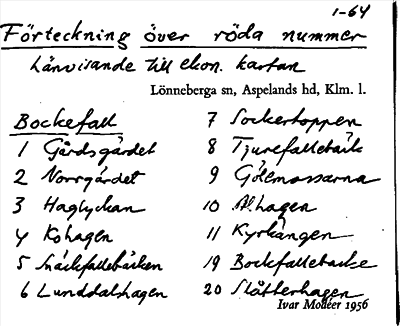 1-64
Förteckning över röda nummer
hänvisande till ekon. kartan
Lönneberga sn, Aspelands hd, Klm. l.
Bockefall
1 Gårdsgärdet
2 Norrgärdet
3 Haglyckan
4 Kohagen
5 Snäckfallebäcken
6 Lunddalshagen
7 Sockertoppen
8 Tjurefallebäck
9 Gölmossarna
10 Alhagen
11 Kyrkängen
19 Bockfallebacke
20 Slåtterhagen
Ivar Modéer 1956